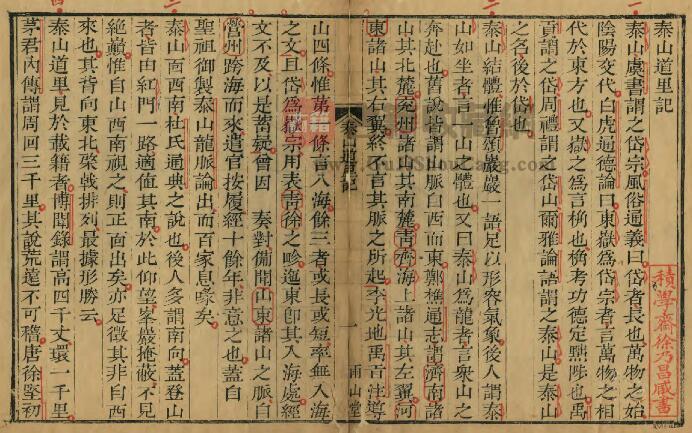 泰山道里記
泰山虞書謂之岱宗風俗通義曰岱者長也萬物之始
陰陽交代白虎通德論曰東嶽為岱宗者言萬物之相
代於東方也又嶽之為言桷也桷考功德定黜陟也禹
貢謂之岱周禮謂之岱山爾雅論語謂之泰山是泰山
之名後於岱也
泰山結體惟魯頌巖巖一語足以形容氣象後人謂泰
山如坐者言一山之體也又曰泰山為龍者言衆山之
奔赴也舊說皆謂山脈自西而東鄭樵通志謂濟南諸
山其北麓兖州諸山其南麓青齊海上諸山其左翼河
東諸山其右翼終不言其脈之所起李光地禹貢注導
泰山道里記
一
雨山堂
山四條惟第一條言入海餘三者或長或短率無入海
之文且岱為嶽宗用表青徐之畛迤東即其入海處經
文不及以是蓄疑曾因 奏對備聞山東諸山之脈自
營州跨海而來遣官按履經十餘年非意之也蓋自
聖祖御製泰山龍脈論出而百家息喙矣
泰山面西南杜氏通典之說也後人多謂南向蓋登山
者皆由紅門一路適值其南於此仰望客巖掩蔽不見
絕巔惟自山西南視之則正面出矣亦足徵其非自西
來也其背向東北棨戟排列最據形勝云
泰山道里見於載籍者博聞錄謂高四千丈環一千里
茅君內傳謂周回三千里其說荒遠不可稽唐徐堅初
積學齋徐乃昌藏書